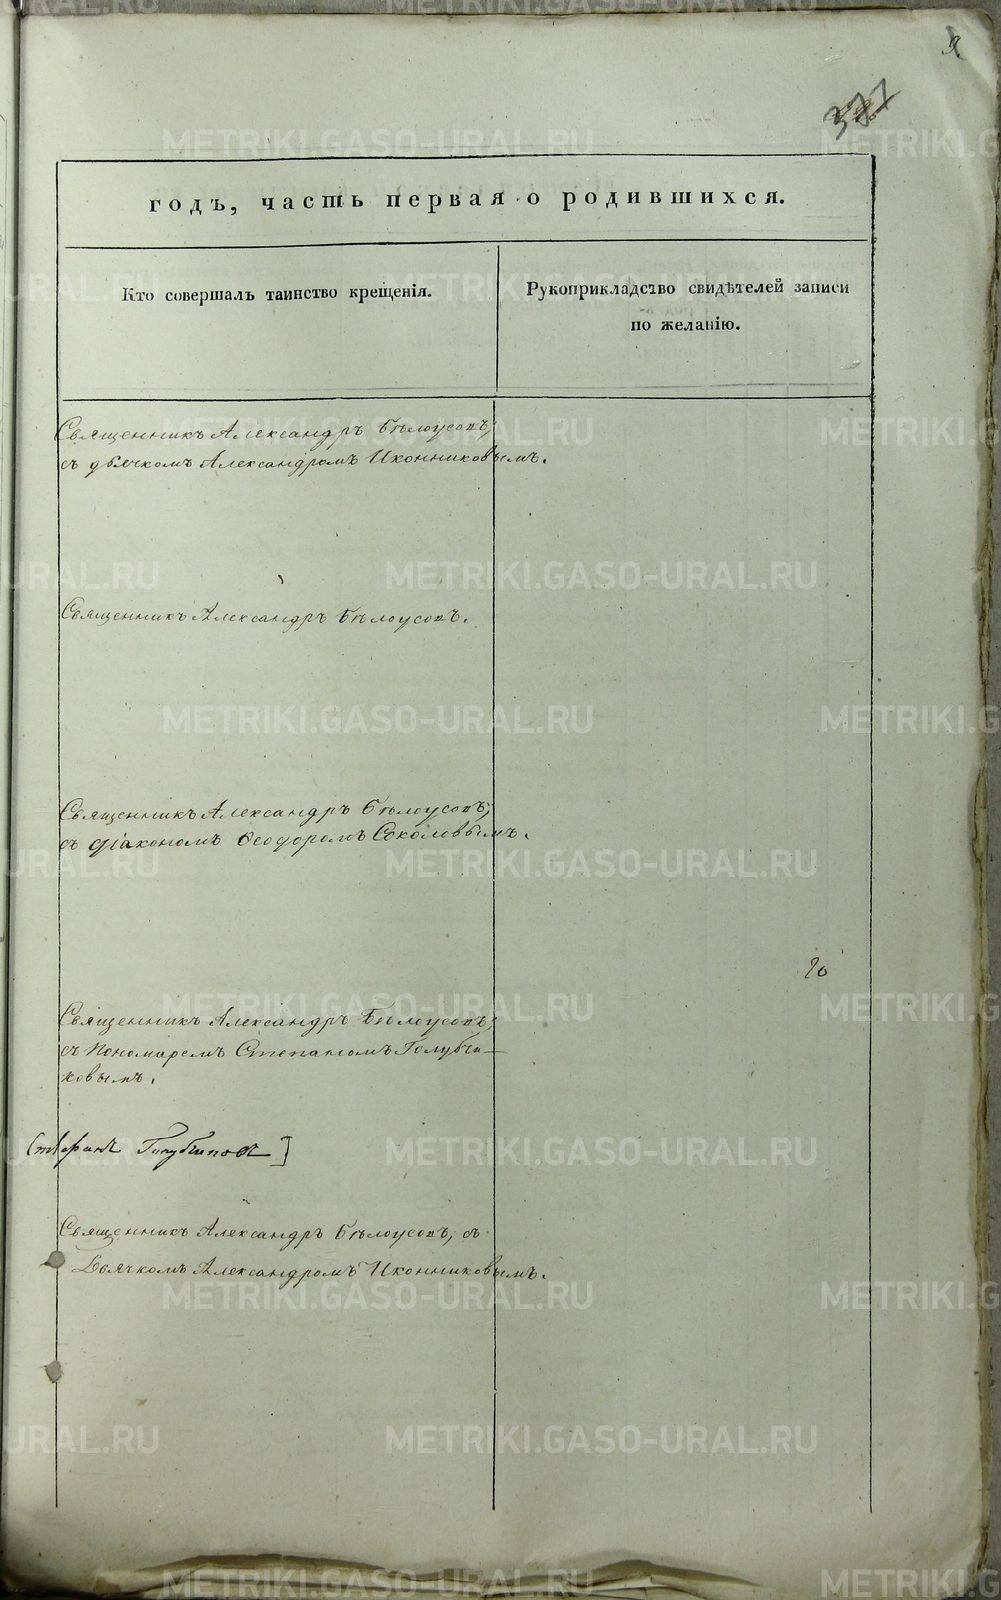 9.
377
годъ, часть первая о родившихся.
Кто совершалъ таинство крещенія.
Рукоприкладство свидѣтелей записи
по желанію.
Священникъ Александръ Бѣлоусовъ,
съ дьячкомъ Александромъ Иконниковымъ.
Священникъ Александръ Бѣлоусовъ.
Священникъ Александръ Бѣлоусовъ,
съ діакономъ Ѳеодоромъ Соколовымъ.
Священникъ Александръ Бѣлоусовъ,
съ Пономаремъ Степаномъ Голубчи-
ковымъ.
Священникъ Александръ Бѣлоусовъ, съ
Дьячкомъ Александромъ Иконниковымъ.
METRIKI.GASO-URAL.RU